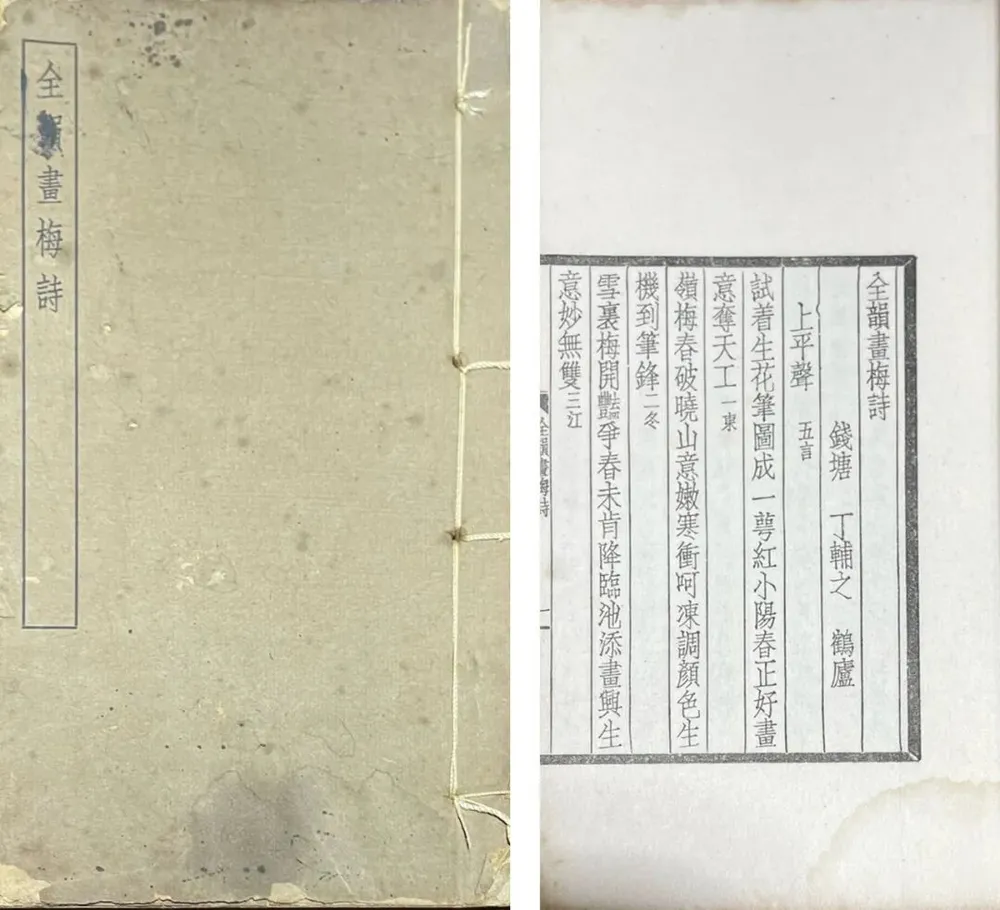 全韻畫梅詩
全韻畫梅詩
錢塘 丁輔之 鶴廬
上平聲 五言
試着生花筆圖成一萼紅小陽春正好畫
意奪天工一東
嶺梅春破曉山意嫩寒衝呵凍調顏色生
機到筆鋒二冬
雪裏梅開豔爭春未肯降臨池添畫興生
意妙無雙三江
全韻畫梅詩
一